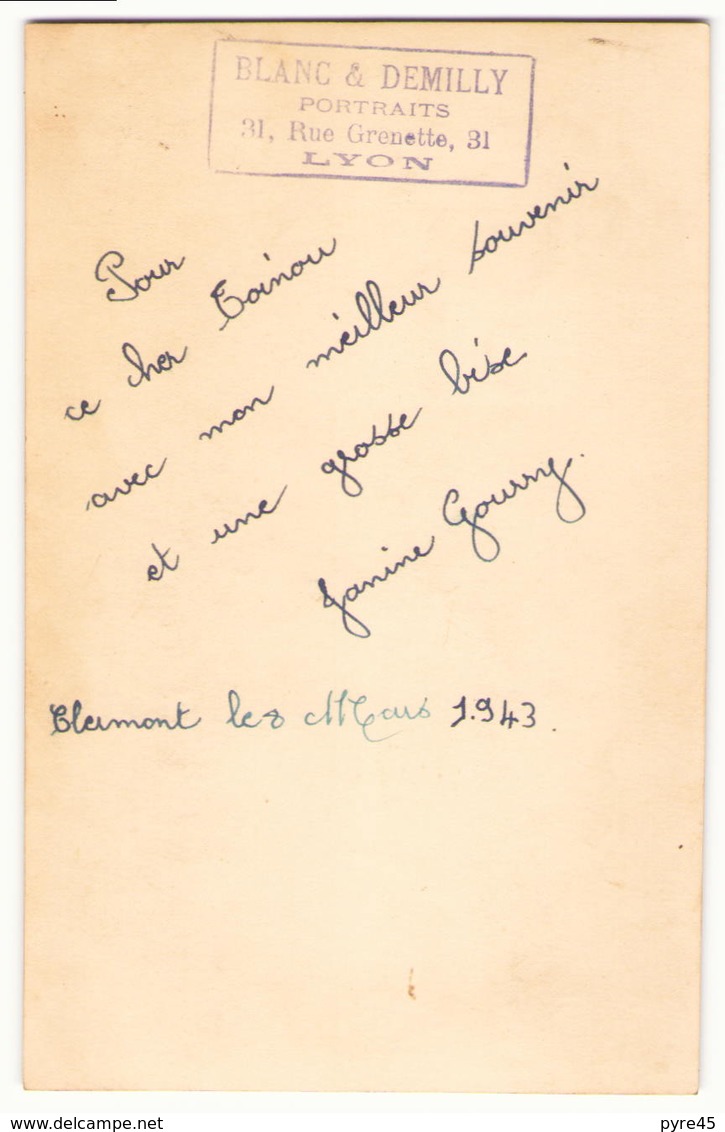 BLANC & DEMILLY
PORTRAITS
31, Rue Grenette, 31
LYON
Pour
ce cher Toinou
avec mon meilleur souvenir
et une grosse bise
Janine Gourry.
Clermont le 8 Mars 1.943.
www.delcampe.net
pyre45